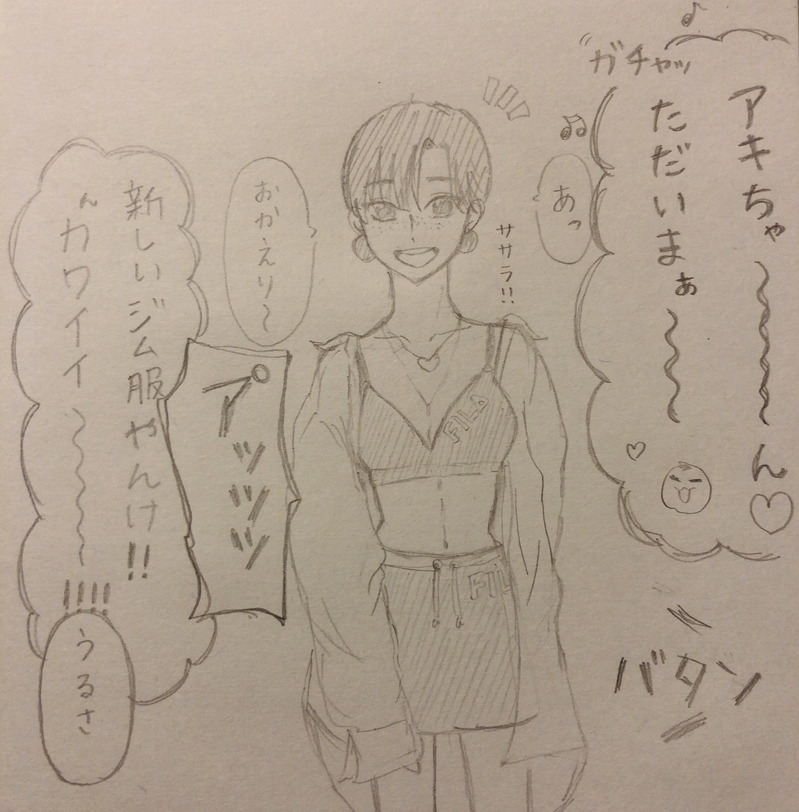 ガチャッ
アキちゃ〜〜〜ん♡
ただいまぁ〜〜〜
♡
あっ
ササラ!!
おかえり〜
アッッッ
新しいジム服やんけ!!
カワイイ〜〜〜!!!!
うるさ
バタン
FILA
FIL